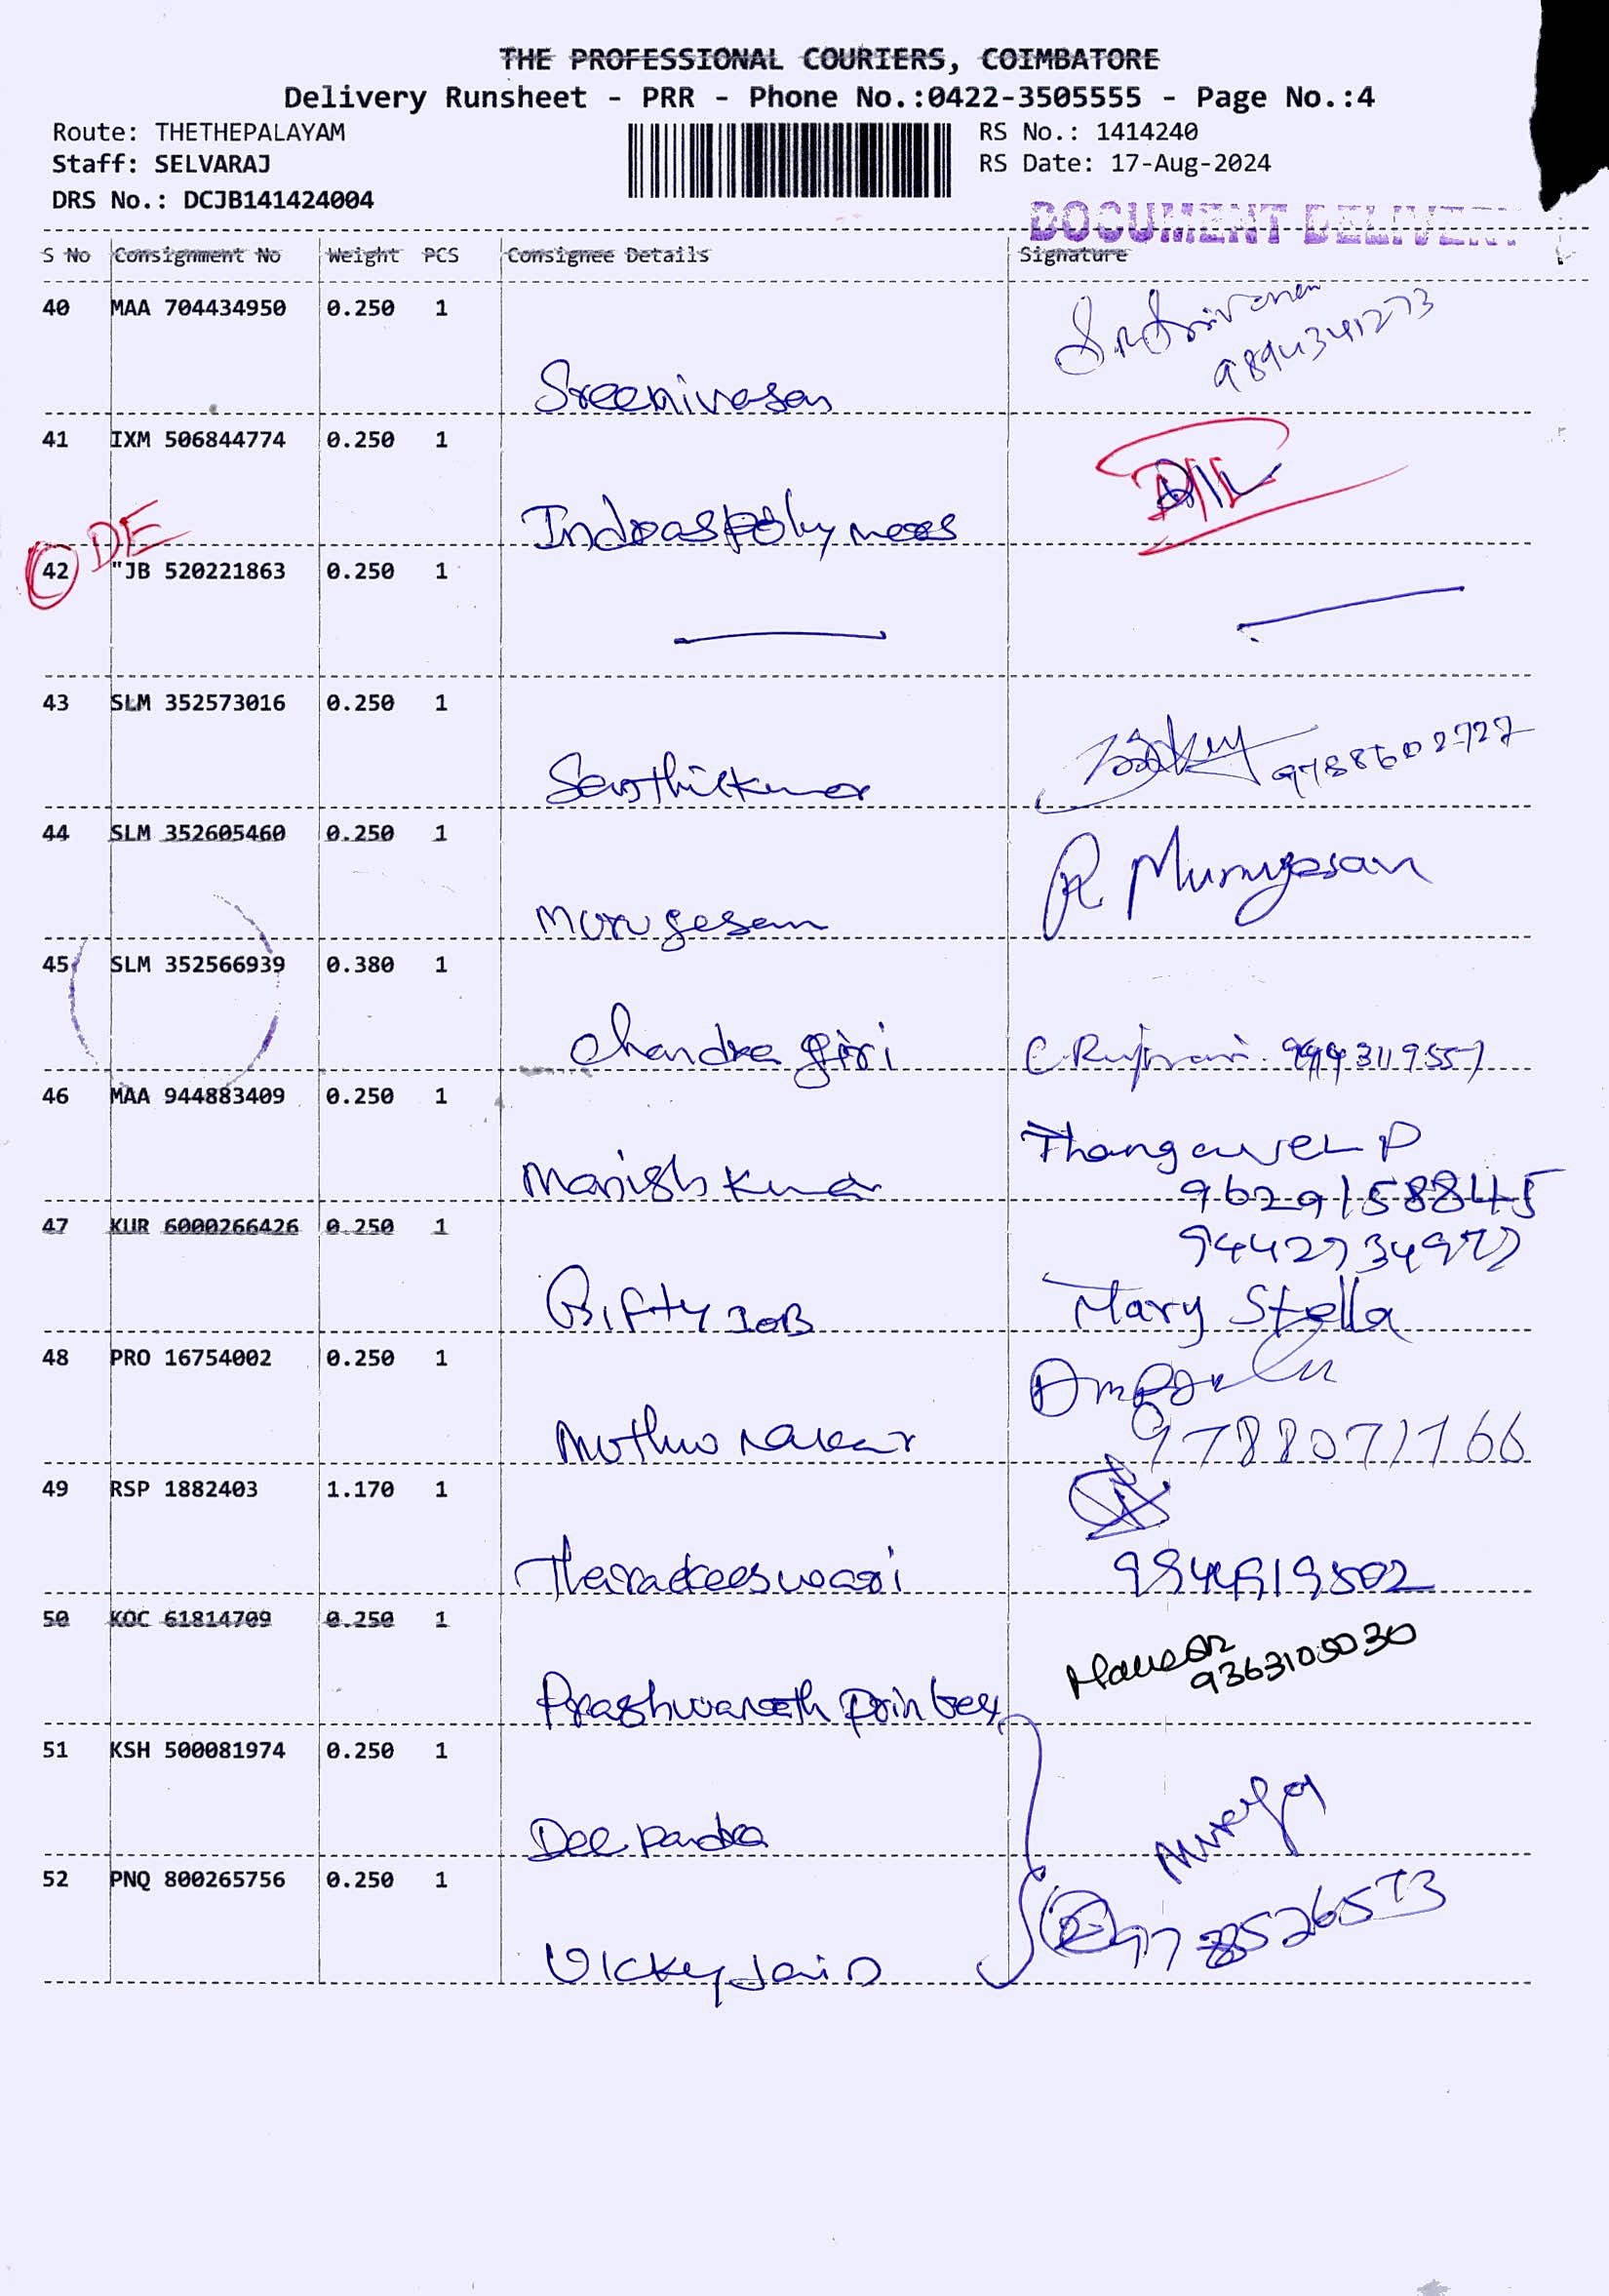 THE PROFESSIONAL COURIERS, COIMBATORE
Delivery Runsheet - PRR - Phone No.:0422-3505555 - Page No.:4
Route: THETHEPALAYAM
RS No.: 1414240
Staff: SELVARAJ
RS Date: 17-Aug-2024
DRS No.: DCJB141424004
DOCUMENT DELIVER
S No Consignment No Weight PCS Consignee Details Signature
40 MAA 704434950 0.250 1
9894341273
Sreenivasan
41 IXM 506844774 0.250 1
D/L
Indraspolymees
DE
42 "JB 520221863 0.250 1
43 SLM 352573016 0.250 1
9788602727
Senthilkumar
44 SLM 352605460 0.250 1
R Murugesan
Murugesan
45 SLM 352566939 0.380 1
Chandra giri
46 MAA 944883409 0.250 1
Thangavel P
Manish Kumar 9629158845
47 KUR 6000266426 0.250 1
9442734977
Gifty JOB Mary Stella
48 PRO 16754002 0.250 1
9788071166
49 RSP 1882403 1.170 1
Tharadeeswari
50 KOC 61814709 0.250 1
9363105030
Prashwanath Printers
51 KSH 500081974 0.250 1
Deepandra
52 PNQ 800265756 0.250 1
9788526573
Vicky Jain